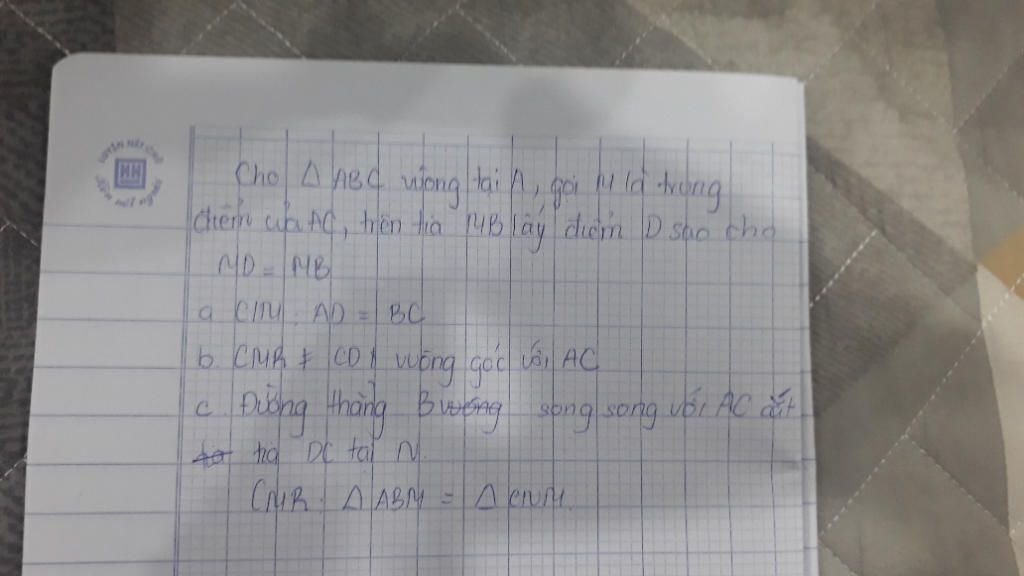 LUYỆN NÉT CHỮ
RÈN NẾT NGƯỜI
Cho Δ ABC vuông tại A, gọi M là trung
điểm của AC, trên tia MB lấy điểm D sao cho
MD = MB
a CM: AD = BC
b. CMR CD vuông góc với AC
c. Đường thẳng B vuông song song với AC cắt
tia DC tại N.
CMR: Δ ABM = Δ CNM.